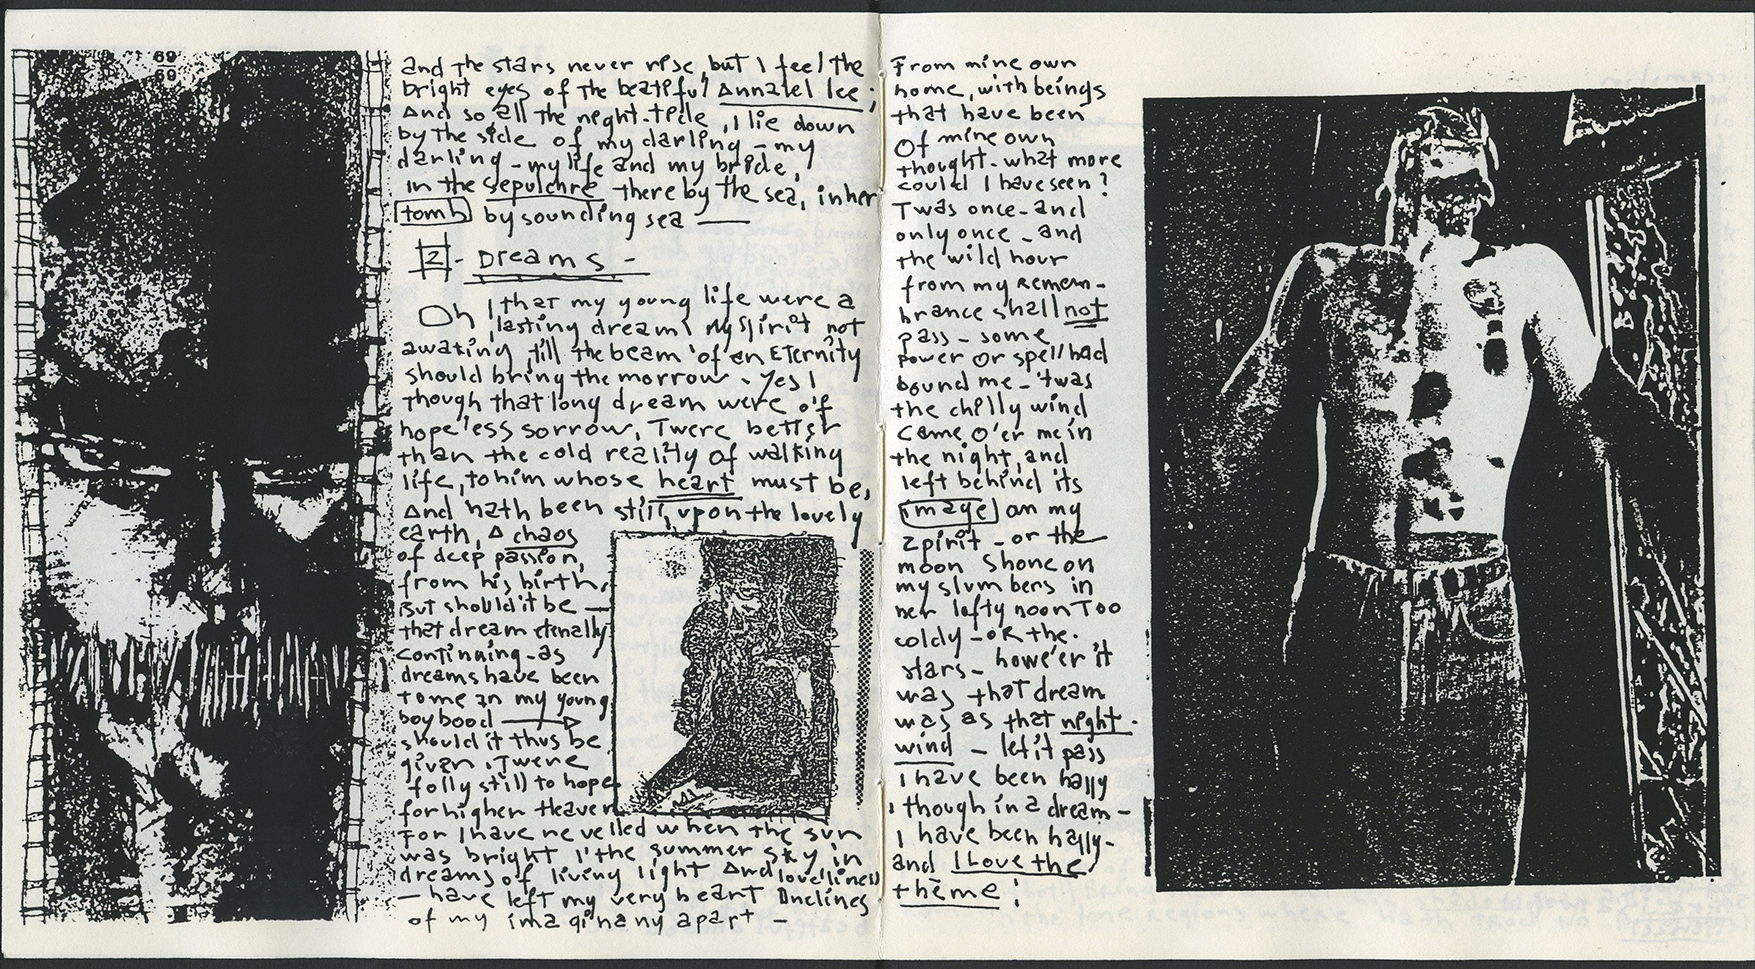 69
69
and the stars never rise, but I feel the
bright eyes of the beatiful Annabel Lee;
And so all the night-tide, I lie down
by the side of my darling - my
darling - my life and my bride,
in the sepulchre there by the sea, in her
tomb by sounding sea —
2 - Dreams -
Oh! that my young life were a
lasting dream! My spirit not
awaking, till the beam of an Eternity
should bring the morrow - Yes!
though that long dream were of
hopeless sorrow, Twere better
than the cold reality of walking
life, to him whose heart must be,
And hath been still, upon the lovely
earth, A chaos
of deep passion,
from his birth,
But should it be —
that dream eternally
continuing - as
dreams have been
to me in my young
boyhood
should it thus be
given, Twere
folly still to hope
for higher Heaven
For I have revelled when the sun
was bright I' the summer sky in
dreams of living light And loveliness
— have left my very heart Inclines
of my imaginany apart
From mine own
home, with beings
that have been
Of mine own
thought - what more
could I have seen?
Twas once - and
only once - and
the wild hour
from my remem-
brance shall not
pass - some
power or spell had
bound me - 'twas
the chilly wind
came o'er me in
the night, and
left behind its
image on my
spirit - or the
moon shone on
my slumbers in
her lofty noon Too
coldly - OR the
stars - howe'er it
was that dream
was as that night-
wind - let it pass
I have been happy
, though in a dream -
I have been happy -
and I Love the
theme!